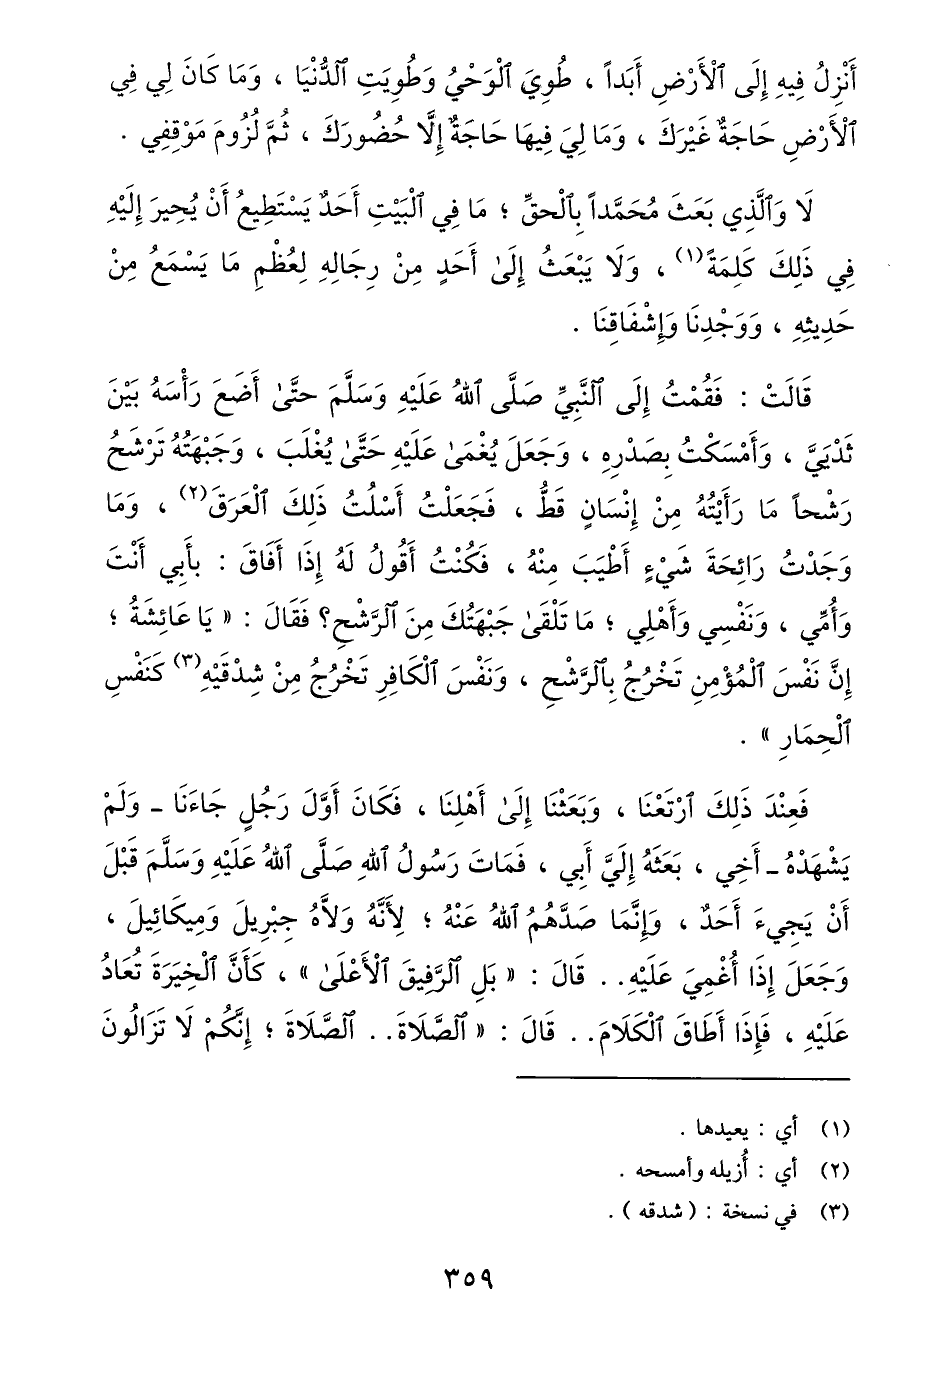 أَنْزِلُ فِيهِ إِلَى ٱلْأَرْضِ أَبَداً ، طُوِيَ ٱلْوَحْيُ وَطُوِيَتِ ٱلدُّنْيَا ، وَمَا كَانَ لِي فِي
ٱلْأَرْضِ حَاجَةٌ غَيْرَكَ ، وَمَا لِيَ فِيهَا حَاجَةٌ إِلَّا حُضُورَكَ ، ثُمَّ لُزُومَ مَوْقِفِي .
لَا وَٱلَّذِي بَعَثَ مُحَمَّداً بِٱلْحَقِّ ؛ مَا فِي ٱلْبَيْتِ أَحَدٌ يَسْتَطِيعُ أَنْ يُحِيرَ إِلَيْهِ
فِي ذَلِكَ كَلِمَةً(١) ، وَلَا يَبْعَثُ إِلَىٰ أَحَدٍ مِنْ رِجَالِهِ لِعُظْمِ مَا يَسْمَعُ مِنْ
حَدِيثِهِ ، وَوَجْدِنَا وَإِشْفَاقِنَا .
قَالَتْ : فَقُمْتُ إِلَى ٱلنَّبِيِّ صَلَّى ٱللهُ عَلَيْهِ وَسَلَّمَ حتَّىٰ أَضَعَ رَأْسَهُ بَيْنَ
ثَدْيَيَّ ، وَأَمْسَكْتُ بِصَدْرِهِ ، وَجَعَلَ يُغْمَىٰ عَلَيْهِ حَتَّىٰ يُغْلَبَ ، وَجَبْهَتُهُ تَرْشَحُ
رَشْحاً مَا رَأَيْتُهُ مِنْ إِنْسَانٍ قَطُّ ، فَجَعَلْتُ أَسْلُتُ ذَلِكَ ٱلْعَرَقَ(٢) ، وَمَا
وَجَدْتُ رَائِحَةَ شَيْءٍ أَطْيَبَ مِنْهُ ، فَكُنْتُ أَقُولُ لَهُ إِذَا أَفَاقَ : بأَبِي أَنْتَ
وَأُمِّي ، وَنَفْسِي وَأَهْلِي ؛ مَا تَلْقَىٰ جَبْهَتُكَ مِنَ ٱلرَّشْحِ؟ فَقَالَ : « يَا عَائِشَةُ ؛
إِنَّ نَفْسَ ٱلْمُؤْمِنِ تَخْرُجُ بِٱلرَّشْحِ ، وَنَفْسَ ٱلْكَافِرِ تَخْرُجُ مِنْ شِدْقَيْهِ(٣) كَنَفْسِ
ٱلْحِمَارِ » .
فَعِنْدَ ذَلِكَ ٱرْتَعْنَا ، وَبَعَثْنَا إِلَىٰ أَهْلِنَا ، فَكَانَ أَوَّلَ رَجُلٍ جَاءَنَا - وَلَمْ
يَشْهَدْهُ - أَخِي ، بَعَثَهُ إِلَيَّ أَبِي ، فَمَاتَ رَسُولُ ٱللهِ صَلَّى ٱللهُ عَلَيْهِ وَسَلَّمَ قَبْلَ
أَنْ يَجِيءَ أَحَدٌ ، وَإِنَّمَا صَدَّهُمُ ٱللهُ عَنْهُ ؛ لِأَنَّهُ وَلاَّهُ جِبْرِيلَ وَمِيكَائِيلَ ،
وَجَعَلَ إِذَا أُغْمِيَ عَلَيْهِ.. قَالَ : « بَلِ ٱلرَّفِيقَ ٱلْأَعْلَىٰ » ، كَأَنَّ ٱلْخِيَرَةَ تُعَادُ
عَلَيْهِ ، فَإِذَا أَطَاقَ ٱلْكَلَامَ.. قَالَ : « ٱلصَّلَاةَ.. ٱلصَّلَاةَ ؛ إِنَّكُمْ لَا تَزَالُونَ
(١) أي : يعيدها .
(٢) أي : أُزيله وأمسحه .
(٣) في نسخة : ( شدقه ) .
٣٥٩